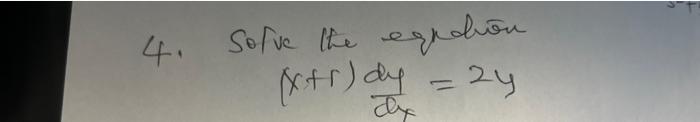 4. Solve the equation
(x+1) dy/dx = 2y